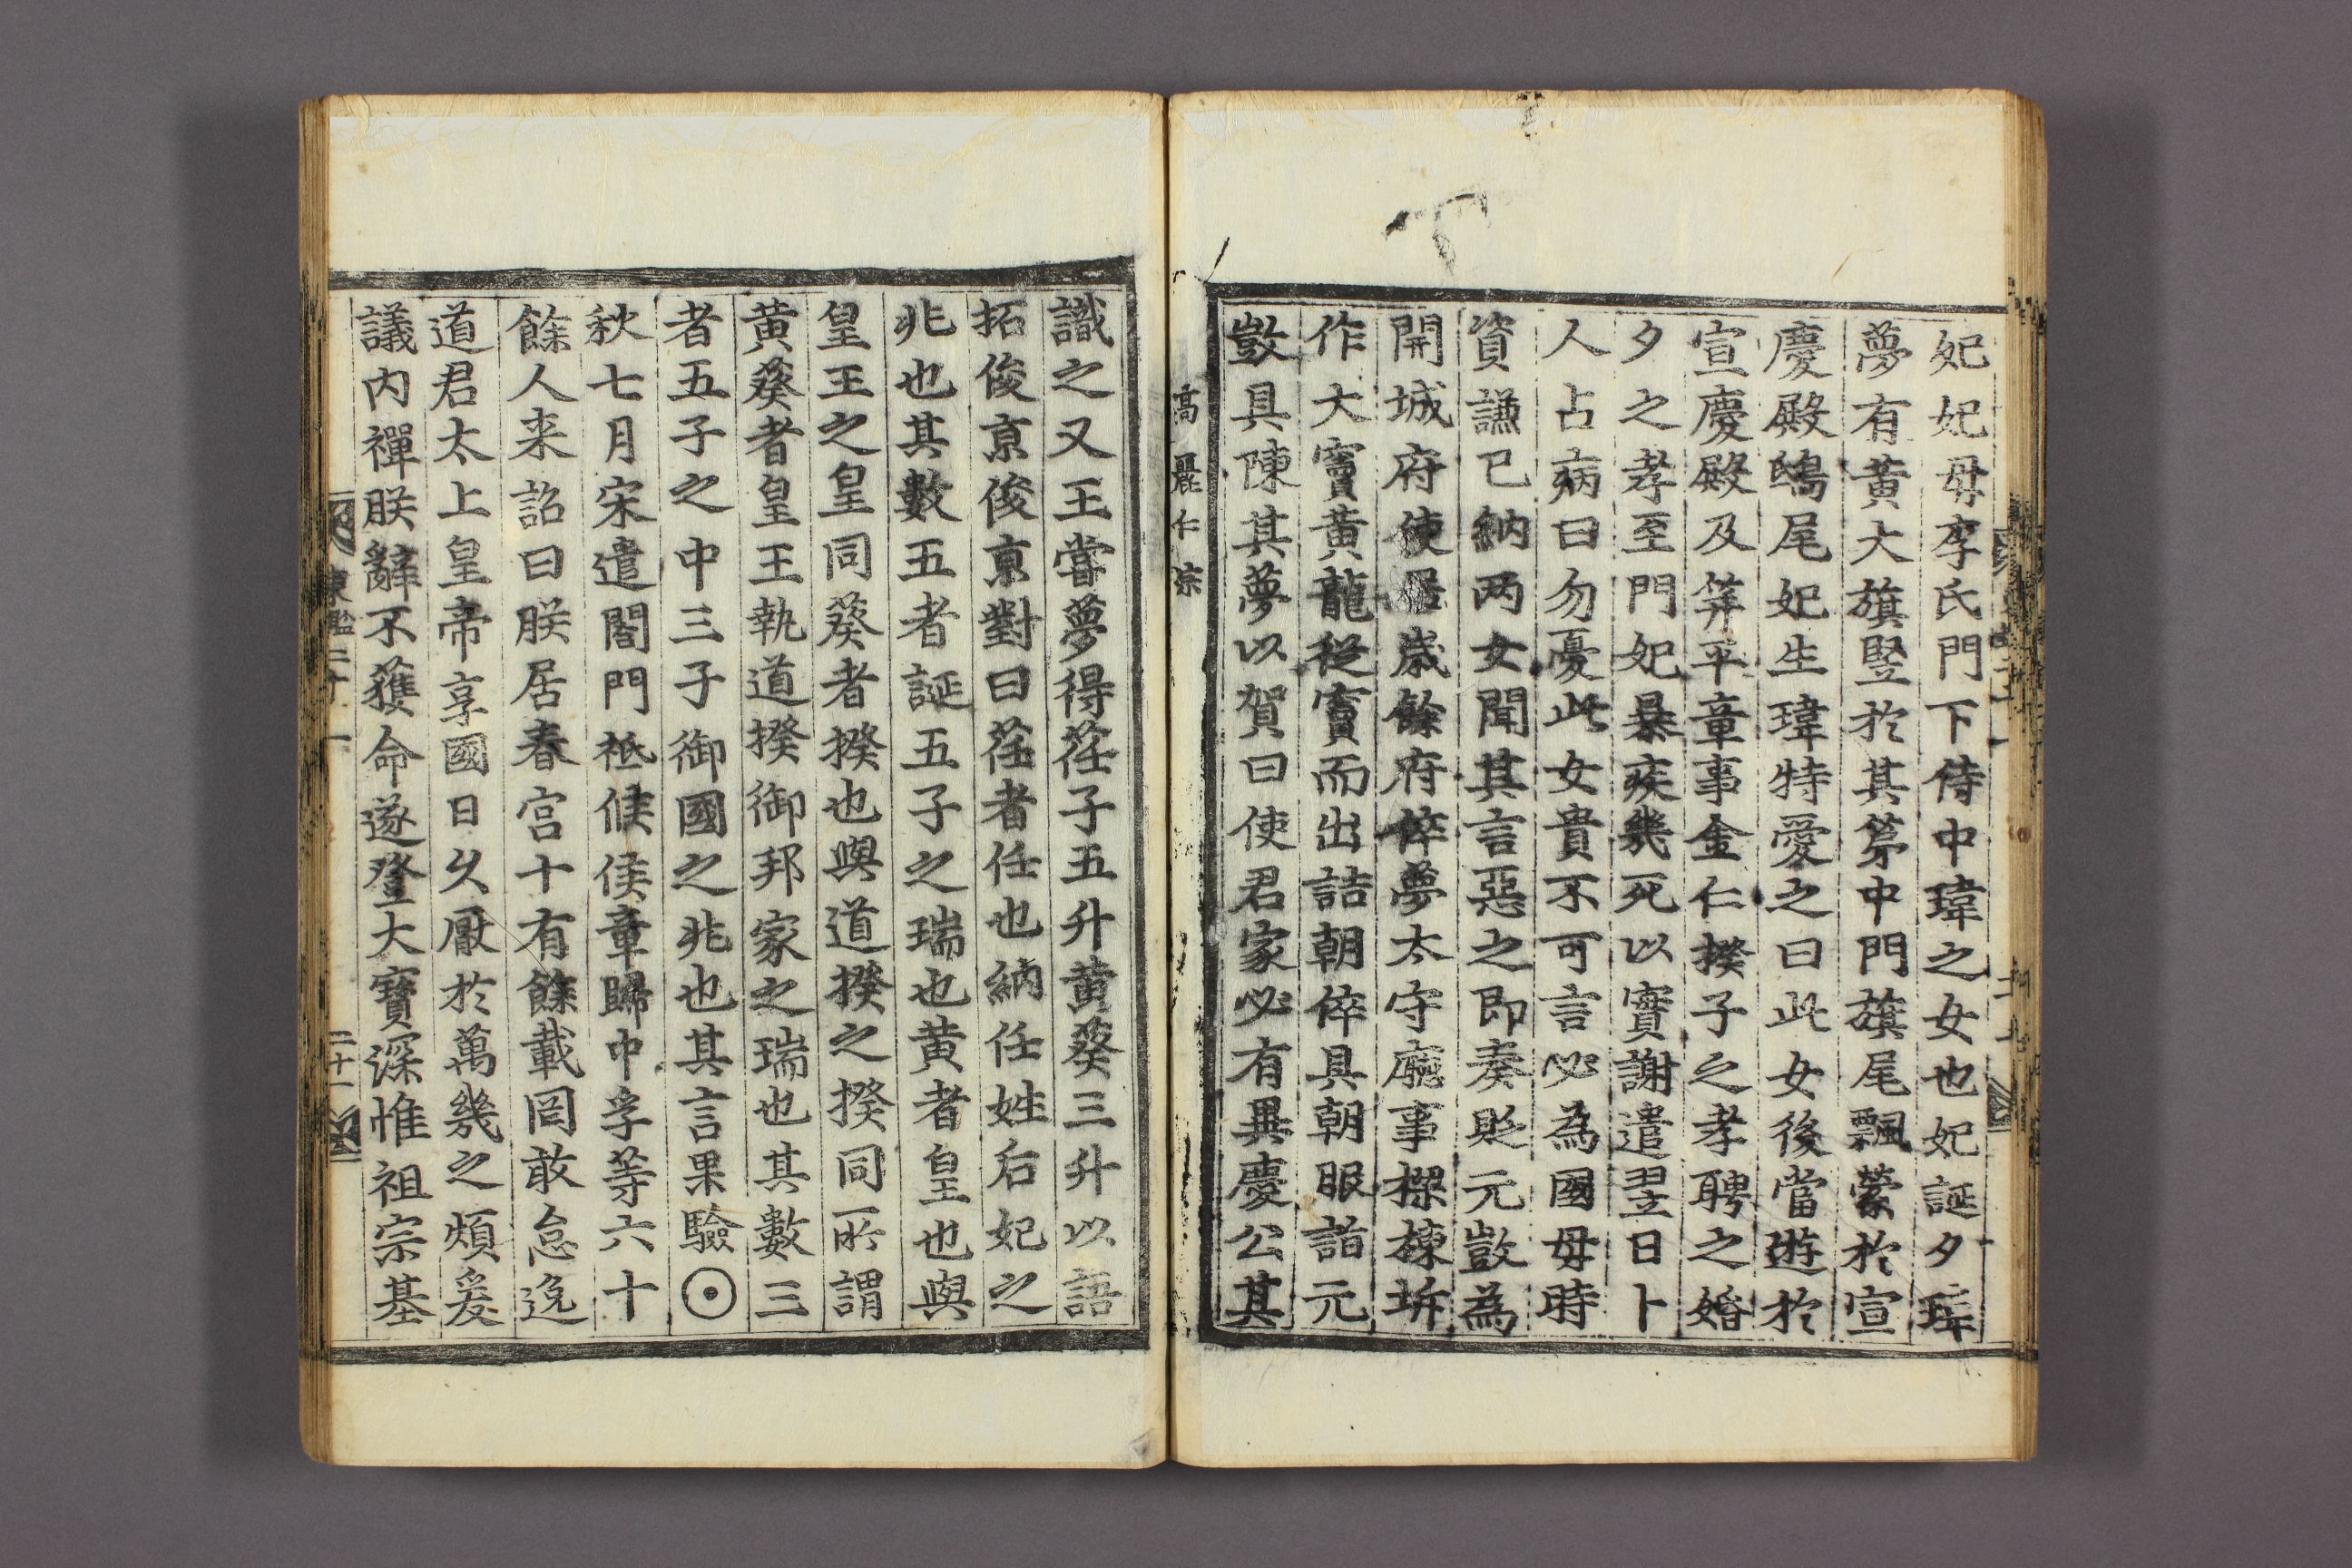 妃妃母李氏門下侍中瑋之女也妃誕夕瑋
夢有黃大旗竪於其第中門旗尾飄縈於宣
慶殿鴟尾妃生瑋特愛之曰此女後當遊於
宣慶殿及笄平章事金仁揆子之孝聘之婚
夕之孝至門妃暴疾幾死以實謝遣翌日卜
人占病曰勿憂此女貴不可言必為國母時
資謙已納两女聞其言惡之即奏貶元敳為
開城府使居歲餘府倅夢太守廳事樑棟坼
作大竇黃龍從竇而出詰朝倅具朝服詣元
敳具陳其夢以賀曰使君家必有異慶公其
高麗仁宗
識之又王嘗夢得荏子五升黃葵三升以語
拓俊京俊京對曰荏者任也納任姓后妃之
兆也其數五者誕五子之瑞也黃者皇也與
皇王之皇同葵者揆也與道揆之揆同所謂
黃葵者皇王執道揆御邦家之瑞也其數三
者五子之中三子御國之兆也其言果驗⊙
秋七月宋遣閤門祗候侯章歸中孚等六十
餘人来詔曰朕居春宮十有餘載罔敢怠逸
道君太上皇帝享國日久厭於萬幾之煩爰
議内禪朕辭不獲命遂登大寶深惟祖宗基
東鑑二十一 二十一